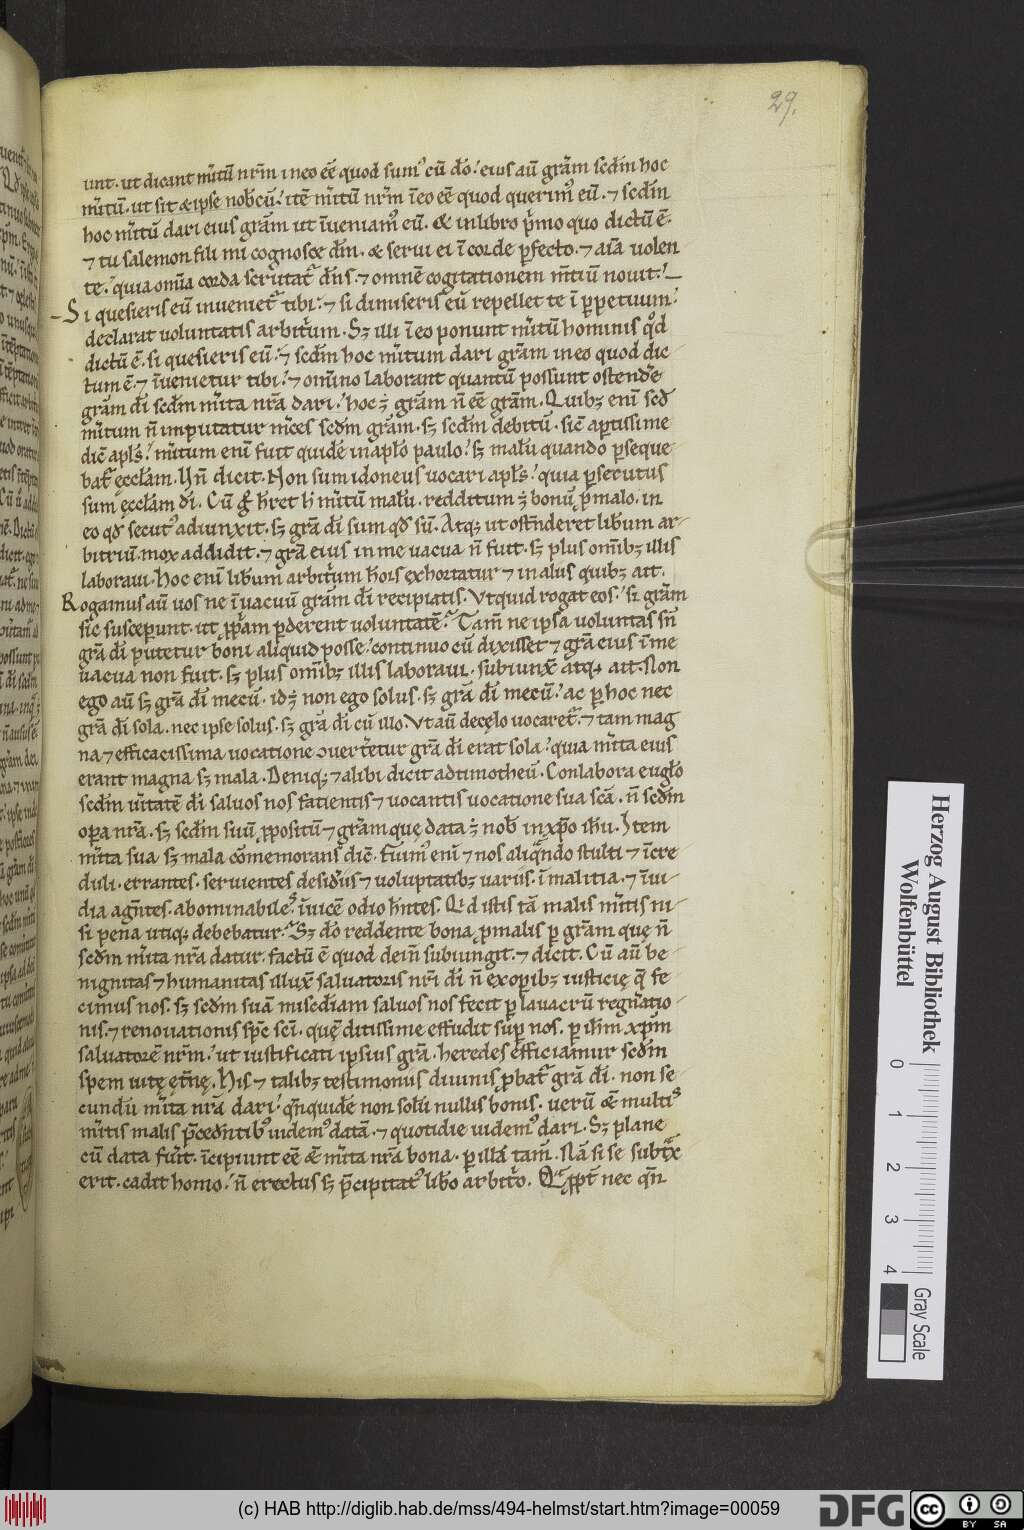 29.
unt. ut dicant mĩtũ nr̃m in eo eẽ quod sumꝰ cũ dõ. eius aũ grãm scd̃m hoc
mĩtũ. ut sit & ipse nobcũ. itẽ mĩtũ nr̃m ĩ eo eẽ quod querimꝰ eũ. ⁊ scd̃m
hoc mĩtũ dari eius grãm ut ĩueniamꝰ eũ. & in libro p̃mo quo dictũ ẽ.
⁊ tu salemon fili mi cognosce dm̃. & serui ei ĩ corde ꝑfecto. ⁊ aĩa uolen
te. quia om̃ia corda scrutat᷑ dñs. ⁊ omnẽ cogitationem m̃tiũ nouit.
Si quesieris eũ inueniet᷑ tibi. ⁊ si dimiseris eũ repellet te ĩ ꝑpetuum.
declarat uoluntatis arbit̃um. Sꝫ illi ĩ eo ponunt mĩtũ hominis qd̃
dictũ ẽ. si quesieris eũ. ⁊ scd̃m hoc mĩtum dari grãm in eo quod dic
tum ẽ. ⁊ ĩuenietur tibi. ⁊ om̃ino laborant quantũ possunt ostendẽ
grãm dĩ scd̃m mĩta nr̃a dari. hoc ẽ grãm ñ eẽ grãm. Quibꝫ enĩ scd̃
mĩtum ñ imputatur m̃ces scd̃m grãm. sꝫ scd̃m debitũ. sic̃ aꝑtissime
dic̃ apl̃s. mĩtum enĩ fuit quidẽ in apl̃o paulo. sꝫ malũ quando ꝑseque
bat᷑ ęccl̃am. Uñ dicit. Non sum idoneus uocari apl̃s. quia ꝑsecutus
sum ęccl̃am dĩ. Cũ g̃ hr̃et h mĩtũ malũ. redditum ẽ bonũ ꝓ malo. in
eo qđ secutꝰ adiunxit. sꝫ grã dĩ sum qđ sũ. Atqꝫ ut ost̃nderet lib̃um ar
bitriũ. mox addidit. ⁊ grã eius in me uacua ñ fuit. sꝫ plus om̃ibꝫ illis
laboraui. Hoc enĩ lib̃um arbit̃um hõis exhortatur ⁊ in aliis quibꝫ ait.
Rogamus aũ uos ne ĩ uacuũ grãm dĩ recipiatis. Vt quid rogat eos. si grãm
sic̃ susceꝑunt. ut ꝓp̃am ꝑderent uoluntatẽ. Tam̃ ne ipsa uoluntas sñ
grã dĩ putetur boni aliquid posse. continuo cũ dixisset ⁊ grã eius ĩ me
uacua non fuit. sꝫ plus om̃ibꝫ illis laboraui. subiunx̃ atqꝫ ait. Non
ego aũ sꝫ grã dĩ mecũ. id ẽ non ego solus. sꝫ grã dĩ mecũ. ac ꝑ hoc nec
grã dĩ sola. nec ipse solus. sꝫ grã dĩ cũ illo. Vt aũ de cęlo uocaret᷑. ⁊ tam mag
na ⁊ efficacissima uocatione ↄuert̃etur grã dĩ erat sola. quia mĩta eius
erant magna sꝫ mala. Deniqꝫ ⁊ alibi dicit ad timotheũ. Conlabora eugl̃o
scd̃m uĩtutẽ dĩ saluos nos facientis ⁊ uocantis uocatione sua scã. ñ scd̃m
oꝑa nr̃a. sꝫ scd̃m suũ ꝓpositũ ⁊ grãm quę data ẽ nob̃ in xp̃o ih̃u. Item
mĩta sua sꝫ mala cõmemorans dic̃. fuimꝰ enĩ ⁊ nos aliqñdo stulti ⁊ ĩcre
duli. errantes. seruientes desid̃iis ⁊ uoluptatibꝫ uariis. ĩ malitia ⁊ ĩui
dia agñtes. abominabiles. ĩuicẽ odio hñtes. Qd istis tã malis mĩtis ni
si pena utiqꝫ debebatur. Sꝫ dõ reddente bona ꝓ malis ꝑ grãm quę ñ
scd̃m mĩta nr̃a datur. factũ ẽ quod dein̄ subiungit. ⁊ dicit. Cũ aũ be
nignitas ⁊ humanitas illux̃ saluatoris nr̃i dĩ. ñ ex oꝑibꝫ iusticię q̃ fe
cimus nos. sꝫ scd̃m suã mis̃c̃diam saluos nos fecit ꝑ lauacrũ regñatio
nis. ⁊ renouationis sp̃c sc̃i. quẽ ditissime effudit suꝑ nos. ꝑ ih̃m xp̃m
saluatorẽ nr̃m. ut iustificati ipsius grã. heredes efficiamur scd̃m
spem uitę ęt̃nę. His ⁊ talibꝫ testimoniis diuinis ꝓbat᷑ grã dĩ. non se
cundũ mĩta nr̃a dari. qñquidẽ non solũ nullis bonis. uerũ & multis
mĩtis malis p̃cedntibꝰ uidemꝰ datã. ⁊ quotidie uidemꝰ dari. Sꝫ plane
cũ data fũit. ĩcipiunt eẽ & mĩta nr̃a bona. ꝑ illã tam̃. Nã si se subt̃x
erit. cadit homo. ñ erectus sꝫ p̃cipitatꝰ lib̃o arbit̃o. Qꝓpt̃ nec qñ
Herzog August Bibliothek
Wolfenbüttel
0 1 2 3 4
Gray Scale
(c) HAB http://diglib.hab.de/mss/494-helmst/start.htm?image=00059
DFG
cc BY SA